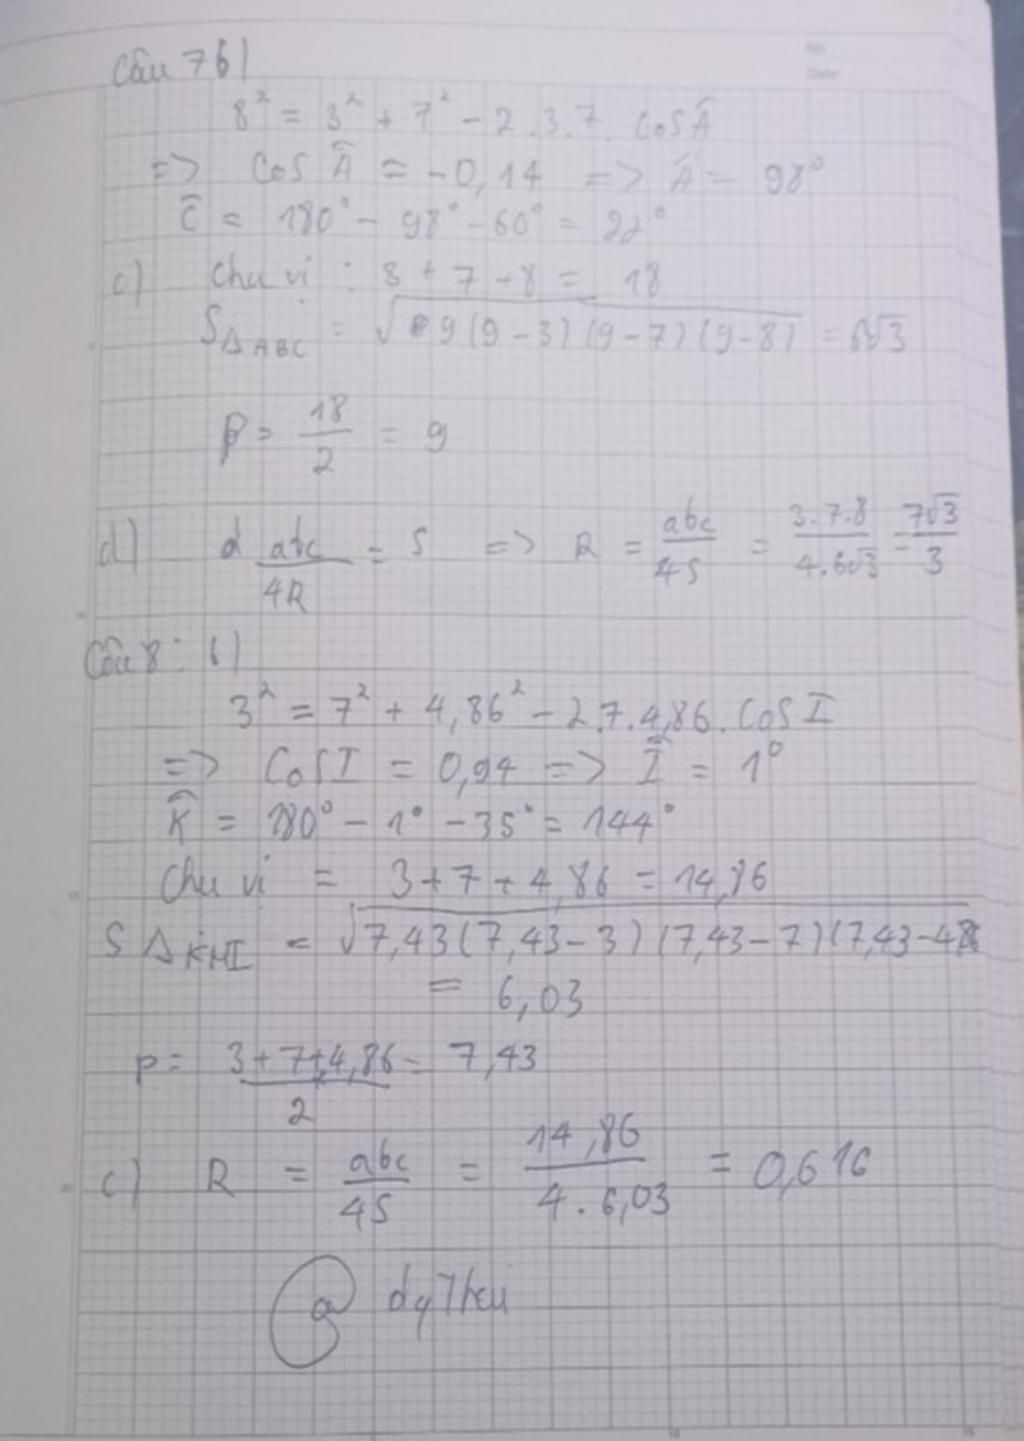 Câu 7 b)
8² = 3² + 7² - 2.3.7. cos Â
=> cos Â = -0,14 => Â = 98°
Ĉ = 180° - 98° - 60° = 22°
c) Chu vi : 3 + 7 + 8 = 18
S△ABC = √9(9-3)(9-7)(9-8) = 6√3
P = 18/2 = 9
d) abc/4R = S => R = abc/4S = 3.7.8/4.6√3 = 7√3/3
Câu 8 : b)
3² = 7² + 4,86² - 2.7.4,86. cos I
=> Cos I = 0,94 => Î = 1°
K̂ = 180° - 1° - 35° = 144°
Chu vi = 3+7+4,86 = 14,86
S△KMI = √7,43(7,43-3)(7,43-7)(7,43-4,8
= 6,03
p = 3+7+4,86/2 = 7,43
c) R = abc/4S = 14,86/4.6,03 = 0,616
@